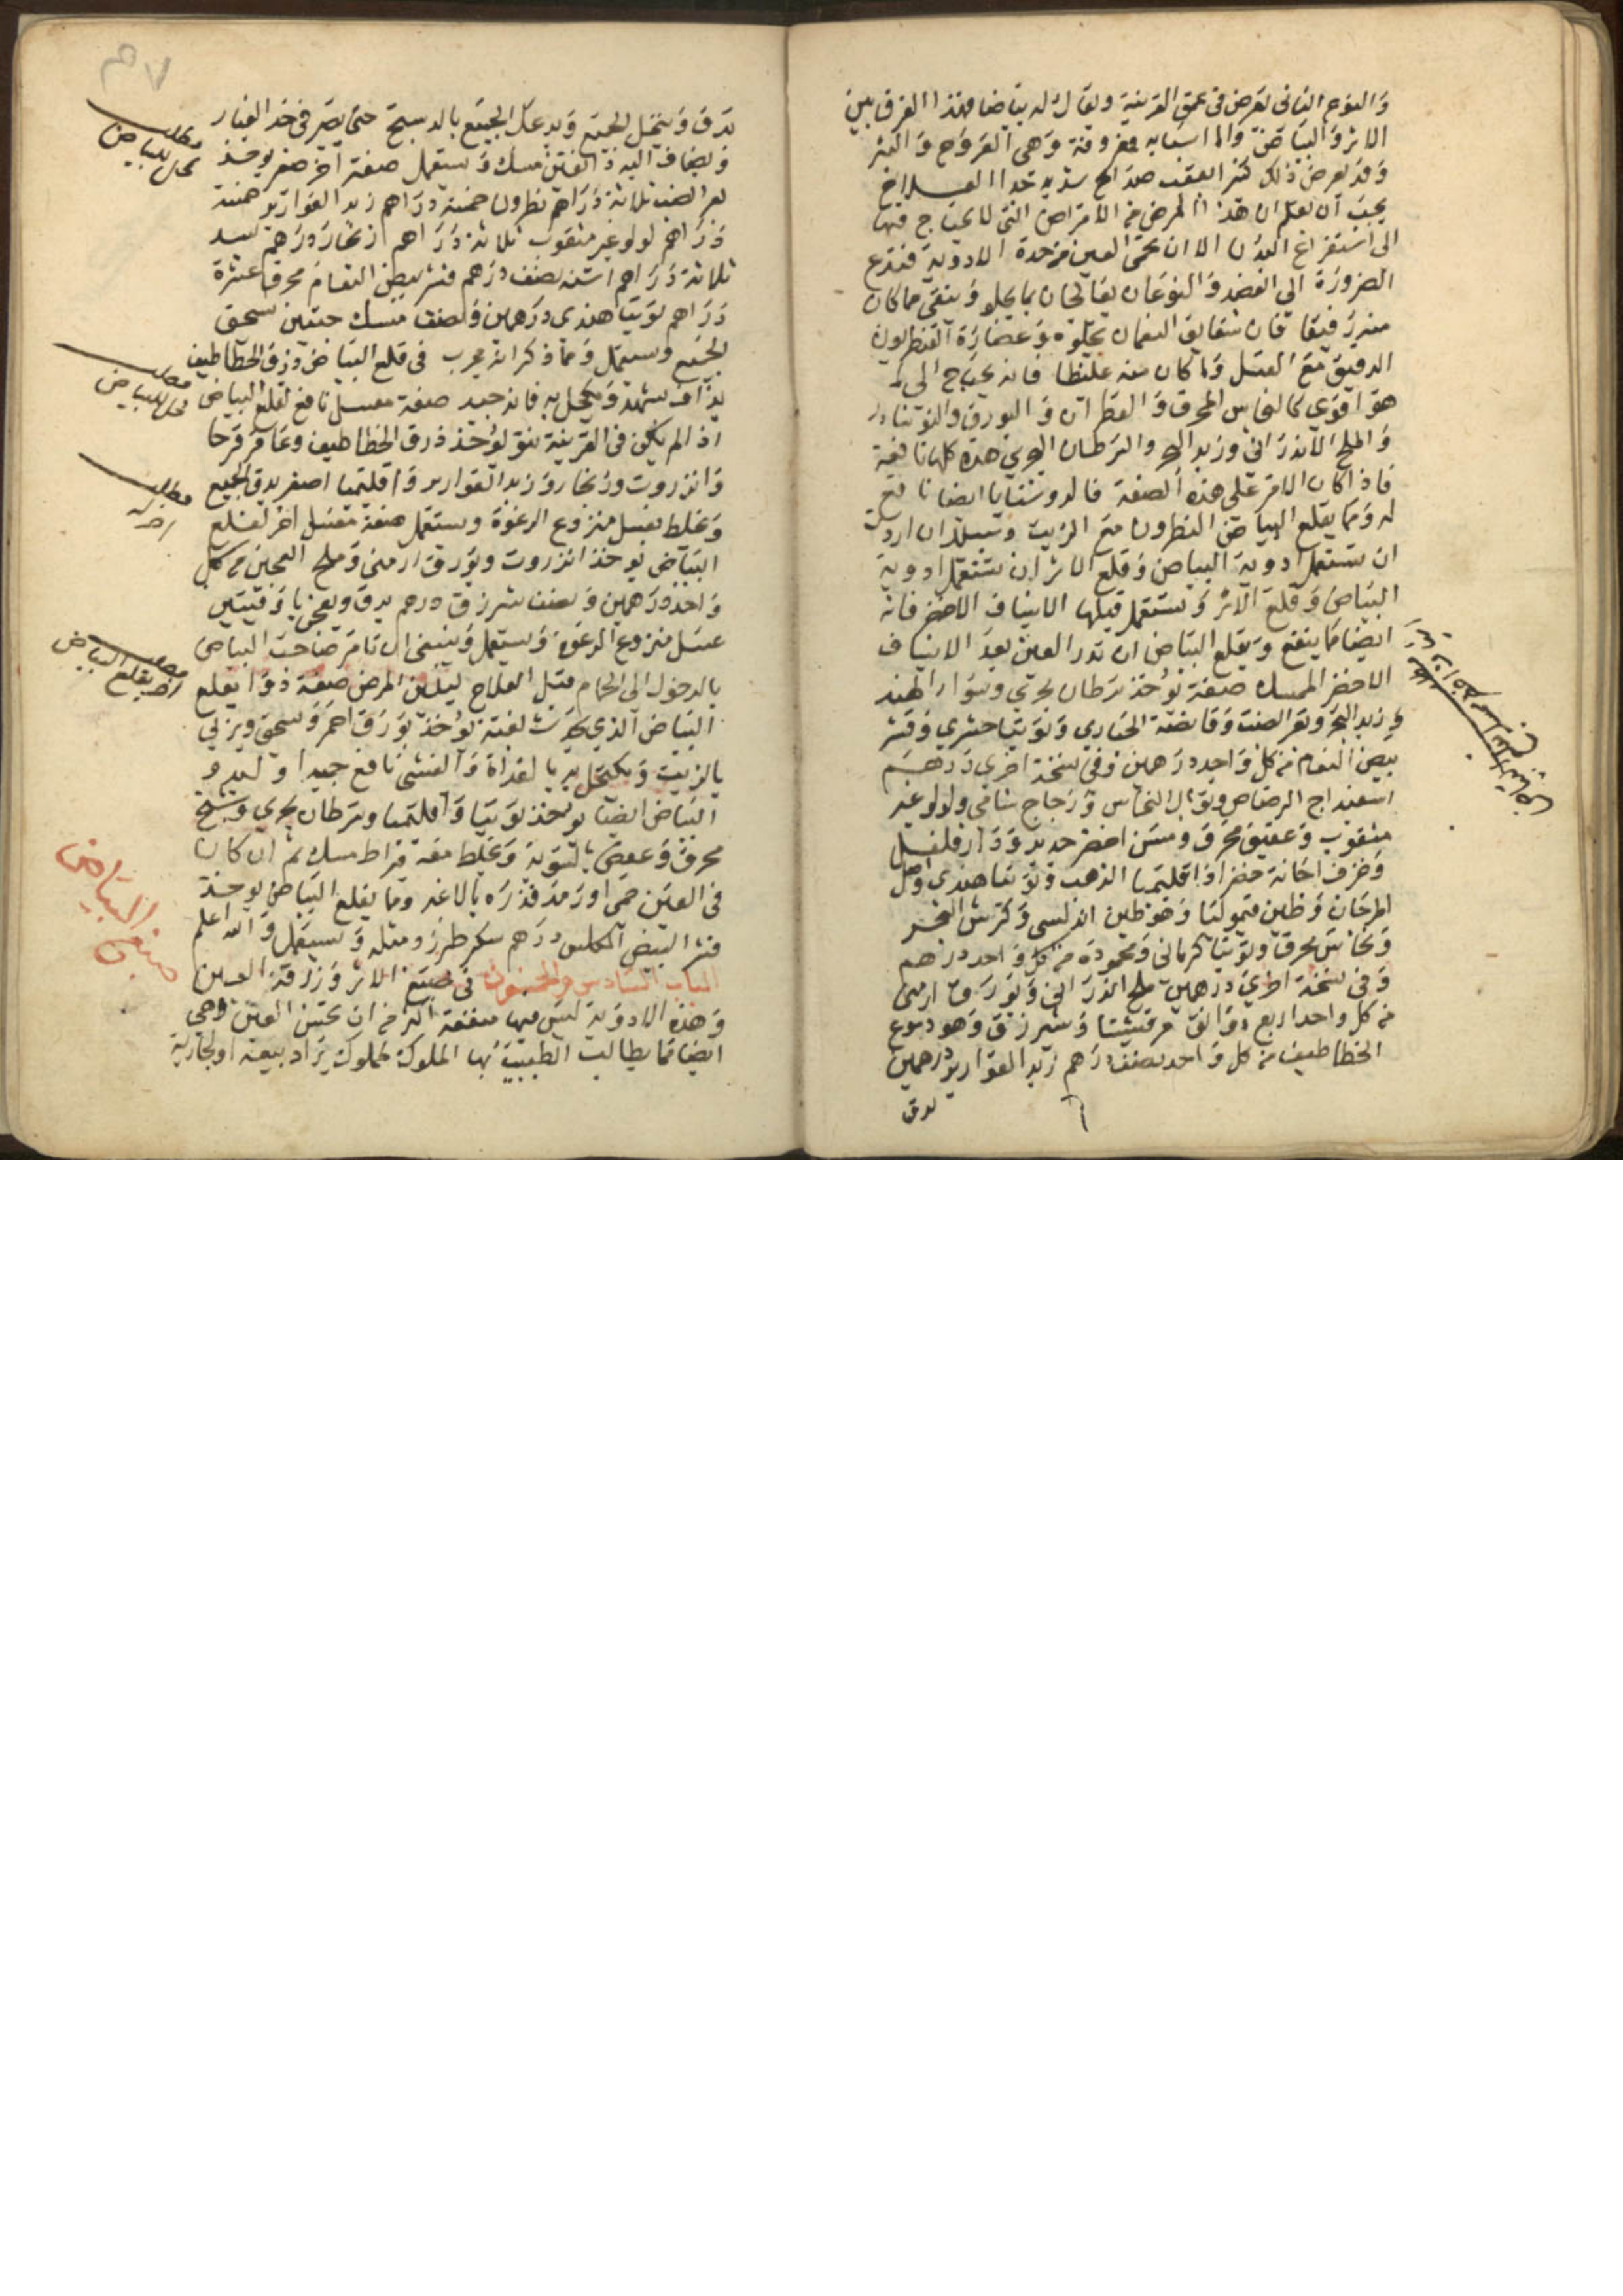 والنوع الثانى يعرض فى عمق القرنية ويقال له بياضا فهذا الفرق بين
الاثر والبياض واما اسبابه معروفة وهى القروح والبثر
وقد يعرض ذلك كثيرا عقب صداع شديد العلاج
يجب ان تعلم ان هذا المرض من الامراض التى لا يحتاج فيها
الى استفراغ البدن الا ان تحمى العين من حدة الادوية فتدع
الضرورة الى الفصد والنوعان يعالجان بما يجلو وينقى فما كان
منه رقيقا فان شقايق النعمان تجلوه وعصارة القنطريون
الدقيق مع العسل وما كان منه غليظا فانه يحتاج الى ما
هو اقوى كالنحاس المحرق والقطران والبورق والنوشادر
والملح الاندرانى وزبد البحر والسرطان البحرى هذه كلها نافعة
فاذا كان الامر على هذه الصفة فالروشنايا ايضا نافع
له ومما يقلع البياض النطرون مع الزيت وسبيلك ان اردت
ان تستعمل ادوية البياض وقلع الاثر ان تستعمل ادوية
البياض وقلع الاثر وتستعمل قبلها الاشياف الاخضر فانه
ايضا مما ينفع ويقلع البياض ان تذر العين بعد الاشياف
الاخضر الممسك صفته يؤخذ سرطان بحرى وسوار الهند
وزبد البحر وبعر الضب وقانصة الحبارى وتوتيا حشرى وقشر
بيض النعام من كل واحد درهمين وفى نسخة اخرى درهم
اسفيداج الرصاص وتوبال النحاس وزجاج شامى ولولو غير
مثقوب وعقيق محرق ومسن اخضر حديد ودار فلفل
وخزف اجانة خضرا واقليميا الذهب وتوتيا هندى واصل
المرجان وطين قيموليا وهو طين اندلسى وكرش البحر
ونحاس محرق وتوتيا كرمانى ومحمودة من كل واحد درهم
وفى نسخة اخرى درهمين ملح اندرانى وبورق ارمنى
من كل واحد اربع دوانق مرقشيشا وشيرزق وهو دموع
الخطاطيف من كل واحد نصف درهم زبد القوارير درهمين
يدق
يدق وينخل الجميع ويدعك الجميع بالدستج حتى يصير فى حد الغبار
ويضاف اليه دانقين مسك ويستعمل صفة اخر صغير يؤخذ
بعر الضب ثلاثة دراهم نطرون خمسة دراهم زبد القوارير خمسة
دراهم لولو غير مثقوب ثلاثة دراهم زنجار درهم بسد
ثلاثة دراهم اشنه نصف درهم قشر بيض النعام محرقا عشرة
دراهم توتيا هندى درهمين ونصف مسك حبتين يسحق
الجميع ويستعمل ومما ذكر انه مجرب فى قلع البياض ذرق الخطاطيف
يداف بشهد ويكحل به فانه جيد صفة معسل نافع لقلع البياض
اذ لم يكن فى القرنية نتو يؤخذ ذرق الخطاطيف وعاقر قرحا
وانزروت وزنجار وزبد القوارير واقليميا اصفر يدق الجميع
ويخلط بعسل منزوع الرغوة ويستعمل صفة معسل اخر لقلع
البياض يؤخذ انزروت وبورق ارمنى وملح العجين من كل
واحد درهمين ونصف شيرزق درهم يدق ويعجن باوقيتين
عسل منزوع الرغوه ويستعمل وينبغى ان تامر صاحب البياض
بالدخول الى الحمام قبل العلاج ليلين المرض صفة دوا يقلع
البياض الذى يحدث بغتة يؤخذ بورق احمر ويسحق ويربى
بالزيت ويكتحل به بالغداة والعشى نافع جيدا
البياض ايضا يؤخذ توتيا واقليميا وسرطان بحرى وسبج
محرق وعفص بالسوية ويخلط معه قيراط مسك ثم ان كان
فى العين حمى او رمد فذره بالاغبر ومما يقلع البياض يؤخذ
قشر البيض المكلس درهم سكر طبرزد مثله ويستعمل والله اعلم
الباب السادس والخمسون فى صبغ الاثر وزرقة العين
وهذه الادوية ليس فيها منفعة اكثر من ان تحسن العين وهى
ايضا مما يطالب الطبيب بها الملوك لمملوك يراد بيعه او لجارية
مطلب
كحل للبياض
مطلب
كحل للبياض
مطلب
اخر له
مطلب
اخر يقلع البياض
البياض